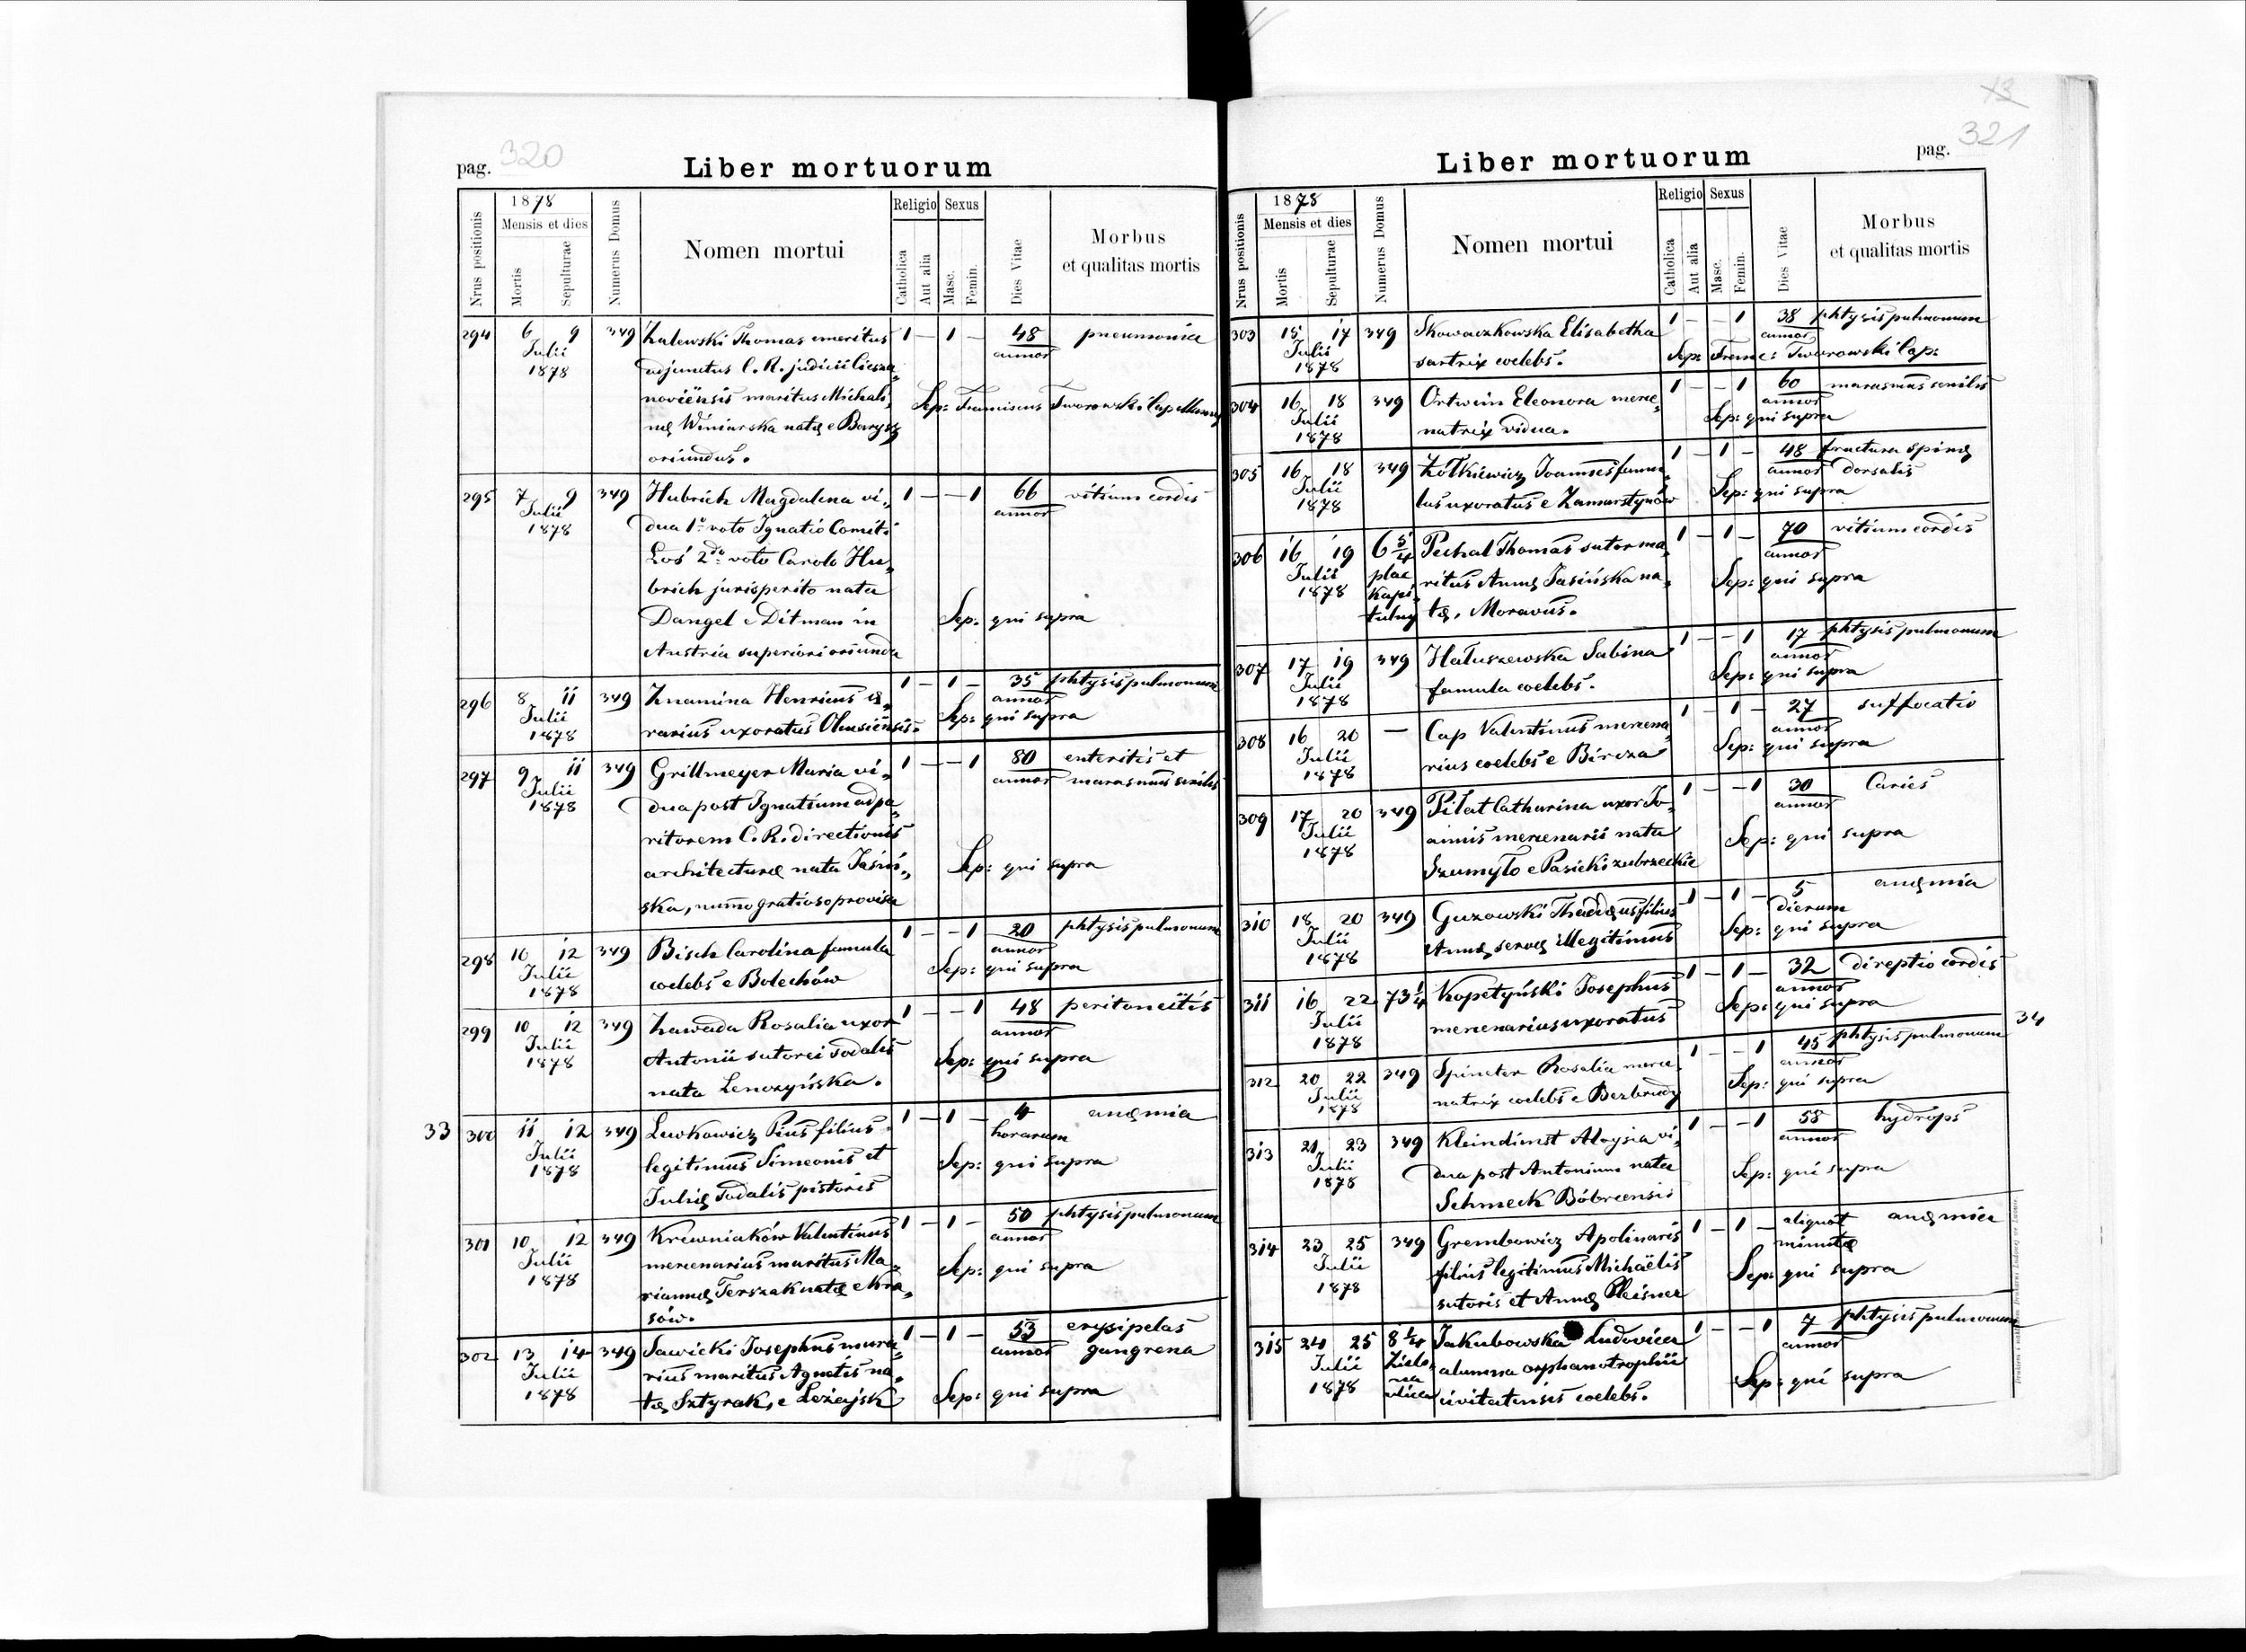 pag. 320
Liber mortuorum
Nrus positionis
1878
Mensis et dies
Mortis
Sepulturae
Numerus Domus
Nomen mortui
Religio
Catholica
Aut alia
Sexus
Masc.
Femin.
Dies Vitae
Morbus
et qualitas mortis
294 6 9 349 Zalewski Thomas emeritus 1 — 1 — 48 pneumonia
Julii adjunctus C. R. judicii Ciesza„ annor
1878 noviënsis maritus Michali„ Sep: Franciscus Tworowski Capellanus
nę Winiarska natę e Barysz
oriundus.
295 7 9 349 Hubrich Magdalena vi„ 1 — — 1 66 vitium cordis
Julii dua 1º voto Ignatio Comiti annor
1878 Łoś 2do voto Carolo Hu„
brich jurisperito nata
Dangel e Ditman in Sep: qui supra
Austria superiori oriunda
296 8 11 349 Znamina Henricus ę„ 1 — 1 — 35 phtysis pulmonum
Julii rarius uxoratus Olnusiënsis. annor
1878 Sep: qui supra
297 9 11 349 Grillmeyer Maria vi„ 1 — — 1 80 enteritis et
Julii dua post Ignatium adpa„ annor marasmus senilis
1878 ritorem C. R. directionis
architecturę nata Jasiń„ Sep: qui supra
ska, nummo gratioso provisa
298 10 12 349 Bisch Carolina famula 1 — — 1 20 phtysis pulmonum
Julii coelebs e Bolechów annor
1878 Sep: qui supra
299 10 12 349 Zawada Rosalia uxor 1 — — 1 48 peritoneitis
Julii Antonii sutorei sodalis annor
1878 nata Lenczyńska. Sep: qui supra
33 300 11 12 349 Lewkowicz Pius filius 1 — 1 — 4 anęmia
Julii legitimus Simeonis et horarum
1878 Julię sodalis pistoris Sep: qui supra
301 10 12 349 Krewniaków Valentinus 1 — 1 — 50 phtysis pulmonum
Julii mercenarius maritus Ma„ annor
1878 riannę Terszak natę e Kra„ Sep: qui supra
sów.
302 13 14 349 Sawicki Josephus mura„ 1 — 1 — 53 erysipelas
Julii rius maritus Agnetis na„ annor gangrena
1878 tę Sztyrak, e Leżajsk Sep: qui supra
13
pag. 321
Liber mortuorum
Nrus positionis
1878
Mensis et dies
Mortis
Sepulturae
Numerus Domus
Nomen mortui
Religio
Catholica
Aut alia
Sexus
Masc.
Femin.
Dies Vitae
Morbus
et qualitas mortis
303 15 17 349 Skowaczkowska Elisabetha 1 — — 1 38 phtysis pulmonum
Julii sartrix coelebs. annor
1878 Sep: Franc: Tworowski Cap:
304 16 18 349 Ortwein Eleonora merce„ 1 — — 1 60 marasmus senilis
Julii natrix vidua. annor
1878 Sep: qui supra
305 16 18 349 Żółkiewicz Joannes famu„ 1 — 1 — 48 fractura spinę
Julii lus uxoratus e Zamarstynów annor dorsalis
1878 Sep: qui supra
306 16 19 6 5/4 Pechal Thomas sutor ma„ 1 — 1 — 70 vitium cordis
Julii plac ritus Annę Jasińska na„ annor
1878 Kapi„ tę, Moravus. Sep: qui supra
tulny
307 17 19 349 Hałuszewska Sabina 1 — — 1 17 phtysis pulmonum
Julii famula coelebs. annor
1878 Sep: qui supra
308 16 20 — Cap Valentinus mercena„ 1 — 1 — 27 suffocatio
Julii rius coelebs e Bircza annor
1878 Sep: qui supra
309 17 20 349 Piłat Catharina uxor Jo„ 1 — — 1 30 Caries
Julii annis mercenarii nata annor
1878 Szumyło e Pasieki zubrzeckie Sep: qui supra
310 18 20 349 Guzowski Thaddęus filius 1 — 1 — 5 anęmia
Julii Annę servę illegitimus dierum
1878 Sep: qui supra
311 16 22 73 1/4 Kopetyński Josephus 1 — 1 — 32 direptio cordis
Julii mercenarius uxoratus annor
1878 Sep: qui supra
34
312 20 22 349 Spineter Rosalia merce„ 1 — — 1 45 phtysis pulmonum
Julii natrix coelebs e Bezbrudy annor
1878 Sep: qui supra
313 21 23 349 Kleindienst Aloysia vi„ 1 — — 1 58 hydrops
Julii dua post Antonium nata annor
1878 Schmeck Bóbrcensis Sep: qui supra
314 23 25 349 Grembowicz Apolinaris 1 — 1 — aliquot anęmia
Julii filius legitimus Michaëlis minutę
1878 sutoris et Annę Pleisner Sep: qui supra
315 24 25 8 1/4 Jakubowska Ludovica 1 — — 1 7 phtysis pulmonum
Julii Zielo„ alumna orphanotrophii annor
1878 na ulica civitatensis coelebs. Sep: qui supra